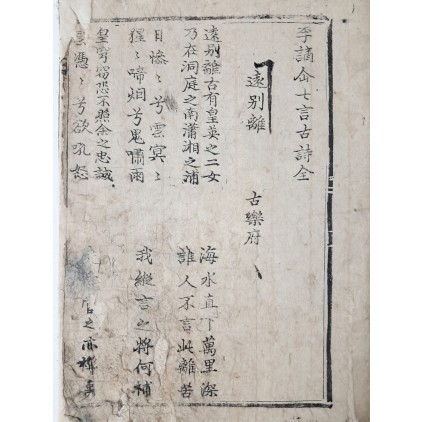 李謫仚七言古詩全
遠別離 古樂府
遠別離古有皇英之二女 海水直下萬里深
乃在洞庭之南瀟湘之浦 誰人不言此離苦
日慘〻兮雲冥〻
猩〻啼烟兮鬼嘯雨 我縱言之將何補
皇穹竊恐不照余之忠誠
雲憑〻兮欲吼怒 之亦禪禹